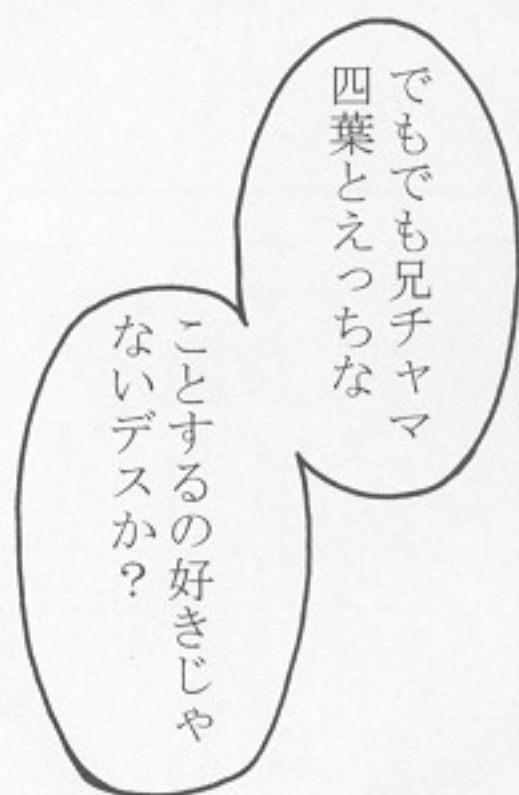 でもでも兄チャマ
四葉とえっちな
ことするの好きじゃ
ないデスか？